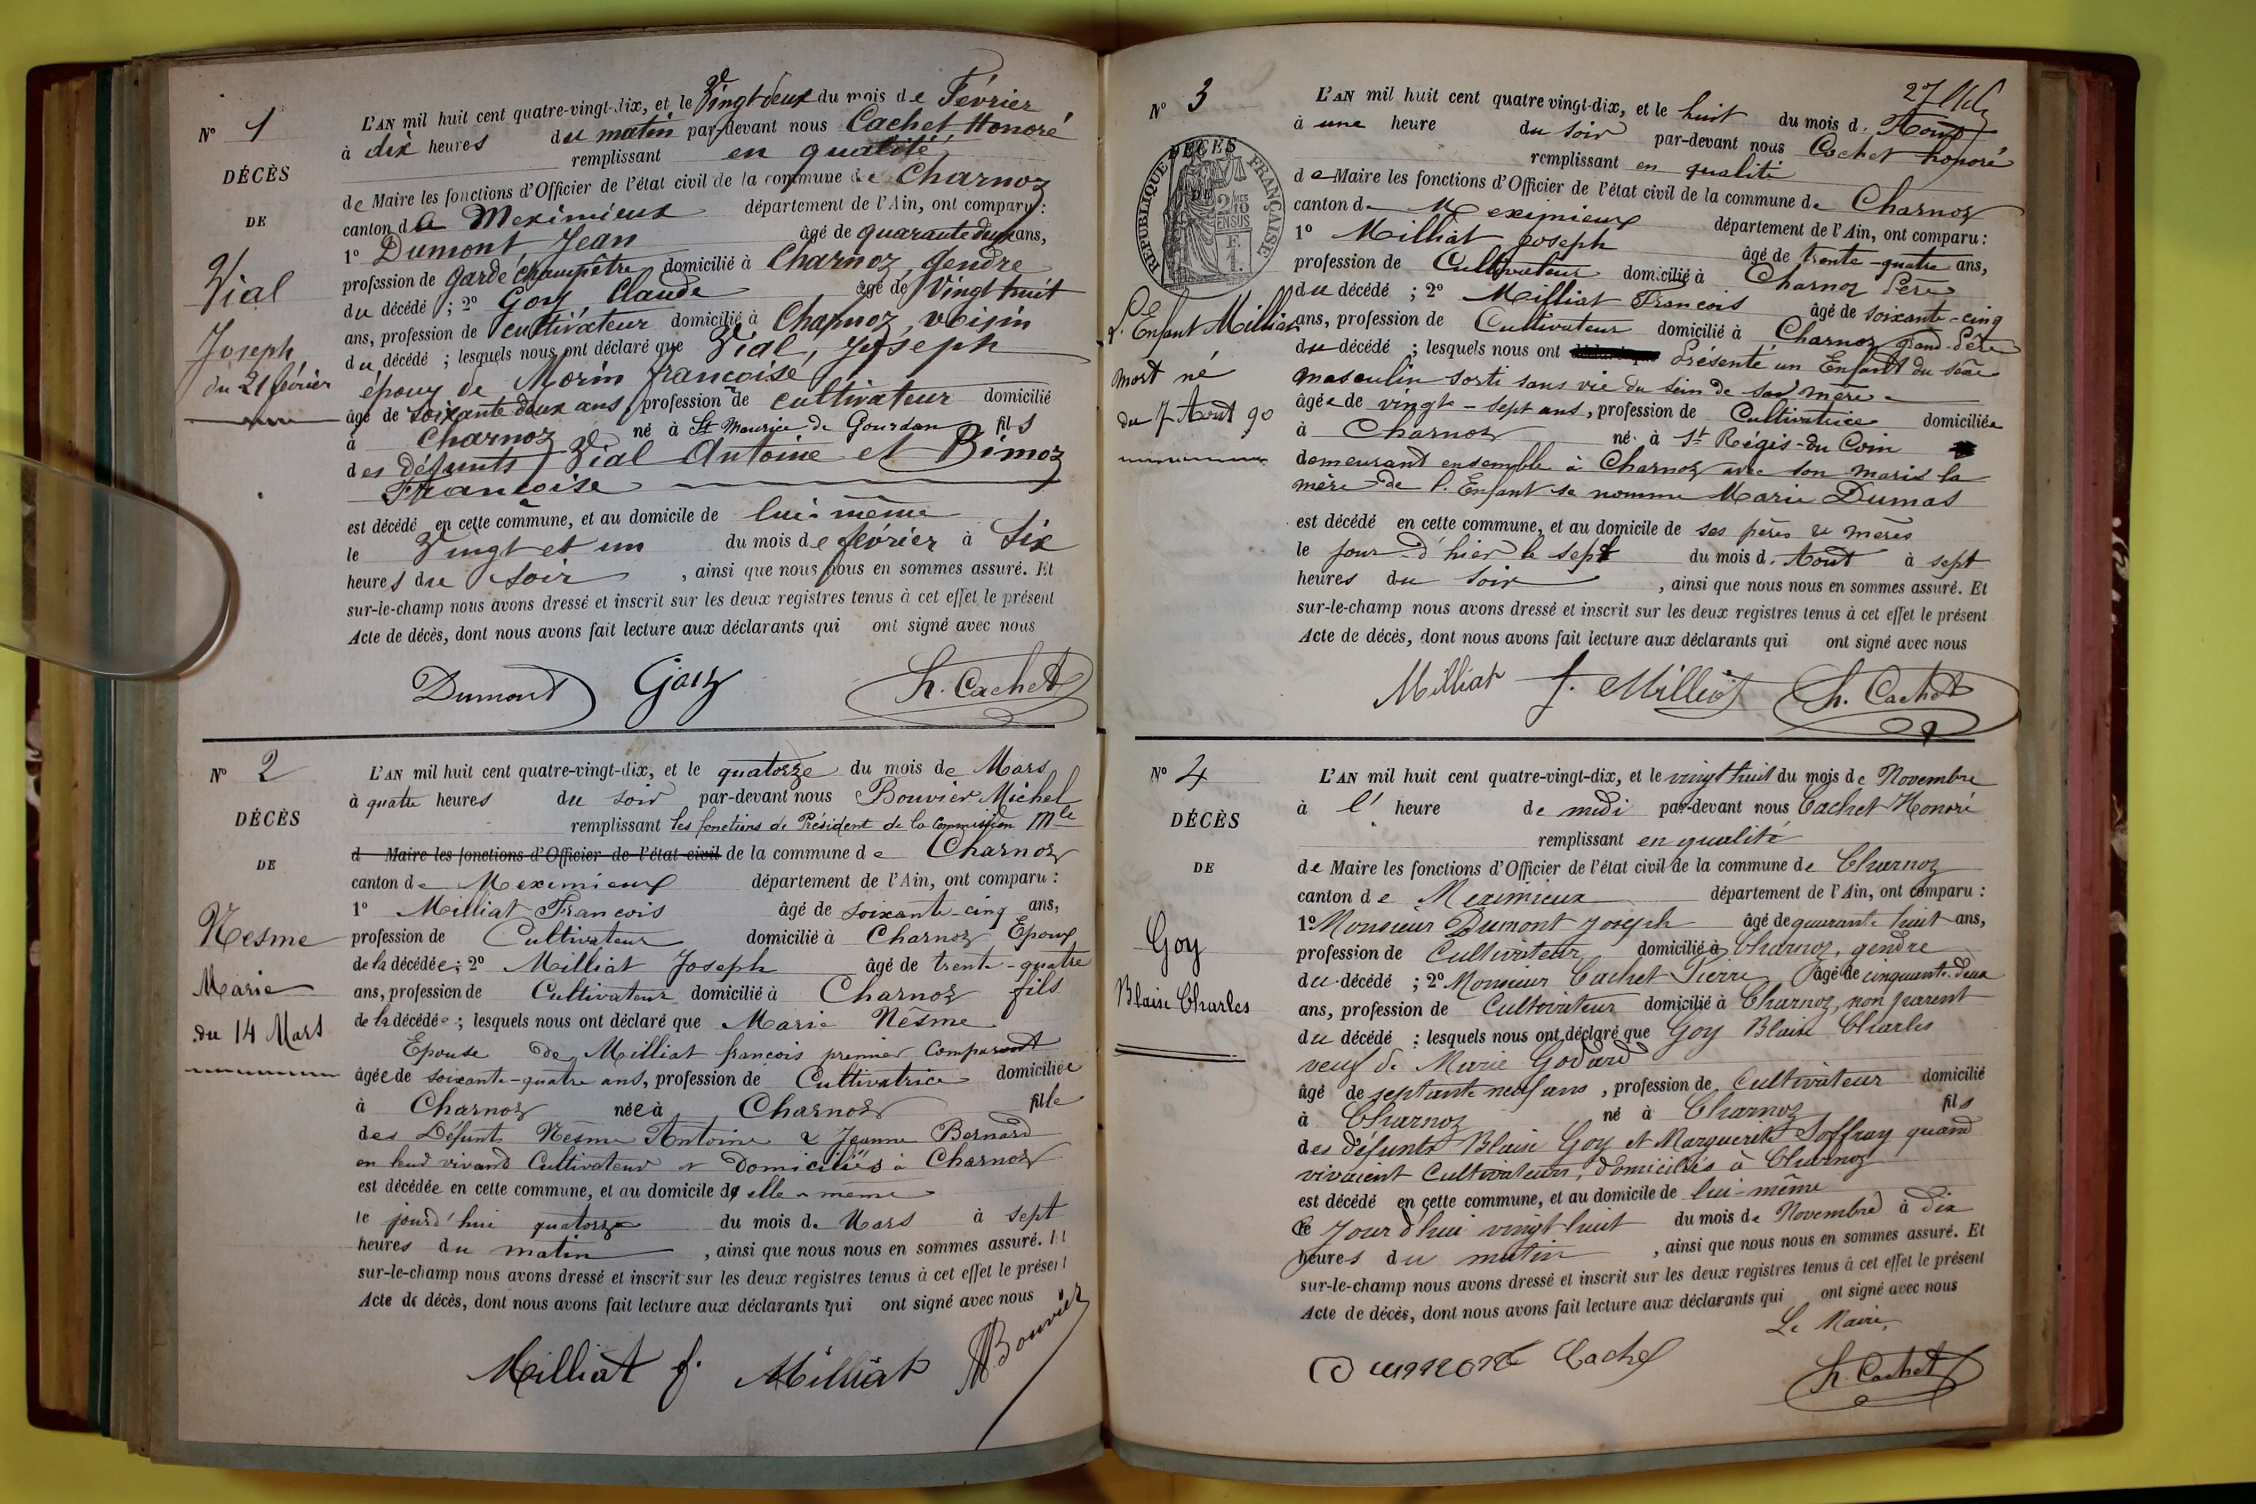 N° 1
DÉCÈS
DE
Vial
Joseph
du 21 février
L'AN mil huit cent quatre-vingt-dix, et le Vingt deux du mois de Février
à dix heures du matin par-devant nous Cachet Honoré
remplissant en qualité
de Maire les fonctions d'Officier de l'état civil de la commune de Charnoz
canton de Meximieux département de l'Ain, ont comparu :
1° Dumont Jean âgé de quarante deux ans,
profession de garde champêtre domicilié à Charnoz, gendre
du décédé ; 2° Goy, Claude âgé de Vingt huit
ans, profession de cultivateur domicilié à Charnoz, voisin
du décédé ; lesquels nous ont déclaré que Vial, Joseph
époux de Morin françoise
âgé de soixante deux ans, profession de cultivateur domicilié
à Charnoz né à St Maurice de Gourdan fils
des défunts Vial Antoine et Bimoz
Françoise
est décédé en cette commune, et au domicile de lui-même
le Vingt et un du mois de février à Six
heures du soir , ainsi que nous nous en sommes assuré. Et
sur-le-champ nous avons dressé et inscrit sur les deux registres tenus à cet effet le présent
Acte de décès, dont nous avons fait lecture aux déclarants qui ont signé avec nous
Dumont Goy h. Cachet
N° 2
DÉCÈS
DE
Nesme
Marie
du 14 Mars
L'AN mil huit cent quatre-vingt-dix, et le quatorze du mois de Mars
à quatre heures du soir par-devant nous Bouvier Michel
remplissant les fonctions de Président de la Commission Mle
d Maire les fonctions d'Officier de l'état civil de la commune de Charnoz
canton de Meximieux département de l'Ain, ont comparu :
1° Milliat François âgé de soixante-cinq ans,
profession de Cultivateur domicilié à Charnoz Epoux
de la décédée ; 2° Milliat Joseph âgé de trente-quatre
ans, profession de Cultivateur domicilié à Charnoz fils
de la décédée ; lesquels nous ont déclaré que Marie Nesme
Epouse de Milliat françois premier Comparant
âgée de soixante-quatre ans, profession de Cultivatrice domiciliée
à Charnoz née à Charnoz fille
des Défunts Nesme Antoine & Jeanne Bernard
en leur vivand Cultivateur et Domiciliës à Charnoz
est décédée en cette commune, et au domicile d' elle-même
le jourd'hui quatorze du mois de Mars à sept
heures du matin , ainsi que nous nous en sommes assuré. Et
sur-le-champ nous avons dressé et inscrit sur les deux registres tenus à cet effet le présent
Acte de décès, dont nous avons fait lecture aux déclarants qui ont signé avec nous
Milliat f. Milliat M Bouvier
N° 3
RÉPUBLIQUE FRANÇAISE
DÉCÈS
DE
2/10 EN SUS
L'Enfant Milliat
mort né
du 7 Août 90
L'AN mil huit cent quatre-vingt-dix, et le huit du mois d'Août
à une heure du soir par-devant nous Cachet honoré
remplissant en qualité
de Maire les fonctions d'Officier de l'état civil de la commune de Charnoz
canton de Meximieux département de l'Ain, ont comparu :
1° Milliat Joseph âgé de trente-quatre ans,
profession de Cultivateur domicilié à Charnoz Père
du décédé ; 2° Milliat François âgé de soixante-cinq
ans, profession de Cultivateur domicilié à Charnoz grand-Père
du décédé ; lesquels nous ont Présenté un Enfant du sexe
masculin sorti sans vie du sein de sa mère
âgée de vingt-sept ans, profession de Cultivatrice domiciliée
à Charnoz né à St Régis-du Coin
demeurant ensemble à Charnoz avec son maris la
mère de l'Enfant se nomme Marie Dumas
est décédé en cette commune, et au domicile de ses pères & mères
le jour d'hier le sept du mois d'Aout à sept
heures du soir , ainsi que nous nous en sommes assuré. Et
sur-le-champ nous avons dressé et inscrit sur les deux registres tenus à cet effet le présent
Acte de décès, dont nous avons fait lecture aux déclarants qui ont signé avec nous
Milliat f. Milliat h. Cachet
N° 4
DÉCÈS
DE
Goy
Blaise Charles
L'AN mil huit cent quatre-vingt-dix, et le vingt huit du mois de Novembre
à l' heure de midi par-devant nous Cachet Honoré
remplissant en qualité
de Maire les fonctions d'Officier de l'état civil de la commune de Charnoz
canton de Meximieux département de l'Ain, ont comparu :
1° Monsieur Dumont Joseph âgé de quarante huit ans,
profession de Cultivateur domicilié à Charnoz, gendre
du décédé ; 2° Monsieur Cachet Pierre âgé de cinquante-deux
ans, profession de Cultivateur domicilié à Charnoz, non parent
du décédé ; lesquels nous ont déclaré que Goy Blaise Charles
veuf de Marie Godard
âgé de septante neuf ans, profession de Cultivateur domicilié
à Charnoz né à Charnoz fils
des défunts Blaise Goy et Marguerite Joffray quand
vivaient Cultivateurs, domiciliés à Charnoz
est décédé en cette commune, et au domicile de lui-même
le jour d'hui vingt-huit du mois de Novembre à dix
heures du matin , ainsi que nous nous en sommes assuré. Et
sur-le-champ nous avons dressé et inscrit sur les deux registres tenus à cet effet le présent
Acte de décès, dont nous avons fait lecture aux déclarants qui ont signé avec nous
Le Maire,
Dumont Cachet h. Cachet